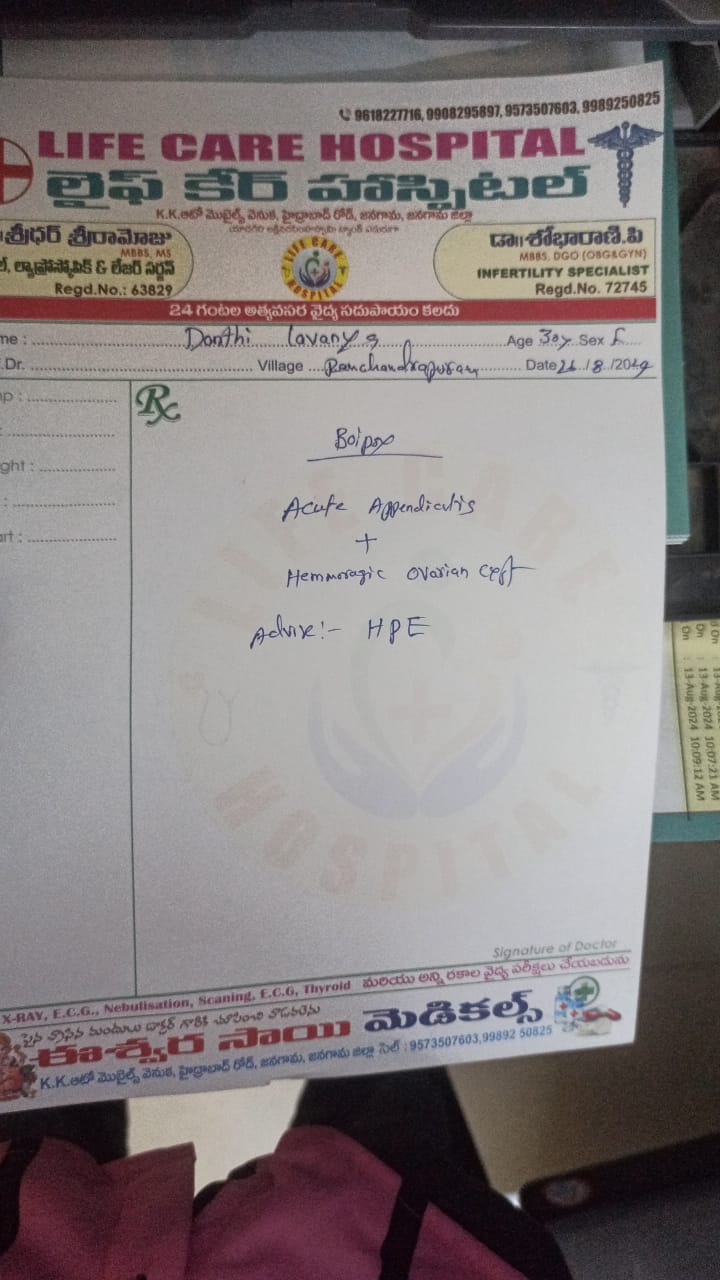 9618227716, 9908295897, 9573507603, 9989250825
LIFE CARE HOSPITAL
లైఫ్ కేర్ హాస్పిటల్
K.K.ఆటో మొబైల్స్ వెనుక, హైద్రాబాద్ రోడ్, జనగామ, జనగామ జిల్లా
శ్రీధర్ శ్రీరామోజు
MBBS, MS
ల్యాప్రోస్కోపిక్ & లేజర్ సర్జన్
Regd.No.: 63829
LIFE CARE
HOSPITAL
డా॥శోభారాణి.పి
MBBS, DGO (OBG&GYN)
INFERTILITY SPECIALIST
Regd.No. 72745
24 గంటల అత్యవసర వైద్య సదుపాయం కలదు
me : Donthi Lavanya Age 30y Sex F
Dr. Village Ramchandrapuram Date 26/8/2024
mp :
:
ght :
:
art :
Rx
Boipsy
Acute Appendicitis
+
Hemmoragic Ovarian Cyst
Advise:- HPE
LIFE CARE
HOSPITAL
Signature of Doctor
X-RAY, E.C.G., Nebulisation, Scaning, E.C.G, Thyroid మరియు అన్ని రకాల వైద్య పరీక్షలు చేయబడును
పైన వ్రాసిన మందులు డాక్టర్ గారికి చూపించి వాడవలెను
ఈశ్వర సాయి మెడికల్స్
K.K.ఆటో మొబైల్స్ వెనుక, హైద్రాబాద్ రోడ్, జనగామ, జనగామ జిల్లా సెల్ : 9573507603,99892 50825
On : 13-Aug-2024 10:07:21 AM
On : 13-Aug-2024 10:09:12 AM